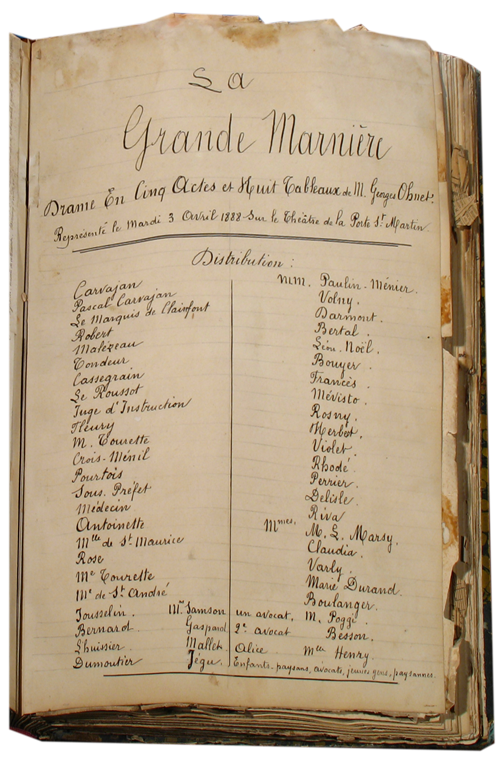 La
Grande Marnière
Drame En Cinq Actes et Huit Tableaux de M. Georges Ohnet.
Représenté le Mardi 3 Avril 1888 Sur le Théâtre de la Porte St. Martin.
Distribution :
Carvajan MM. Paulin-Ménier.
Pascal Carvajan Volny.
Le Marquis de Clairefont Darmont.
Robert Bertal.
Malezeau Léon Noël.
Tondeur Bouyer.
Cassegrain Francès.
Le Roussot Mévisto.
Juge d'Instruction Rosny.
Fleury Herbert.
M. Tourette Violet.
Croix-Ménil Rhodé.
Pourtois Perrier.
Sous-Préfet Delisle.
Médecin Riva
Antoinette Mmes. M. L. Marsy.
Mlle de St. Maurice Claudia.
Rose Varly.
Me Tourette Marie Durand.
Me de St André Boulanger.
Jousselin. Mr. Samson un avocat. M. Poggi.
Bernard Gaspard 2e avocat Besson.
Lhuissier Mallet Alice Melle Henry.
Dumoutier Jégu. Enfants, paysans, avocats, jeunes gens, paysannes.